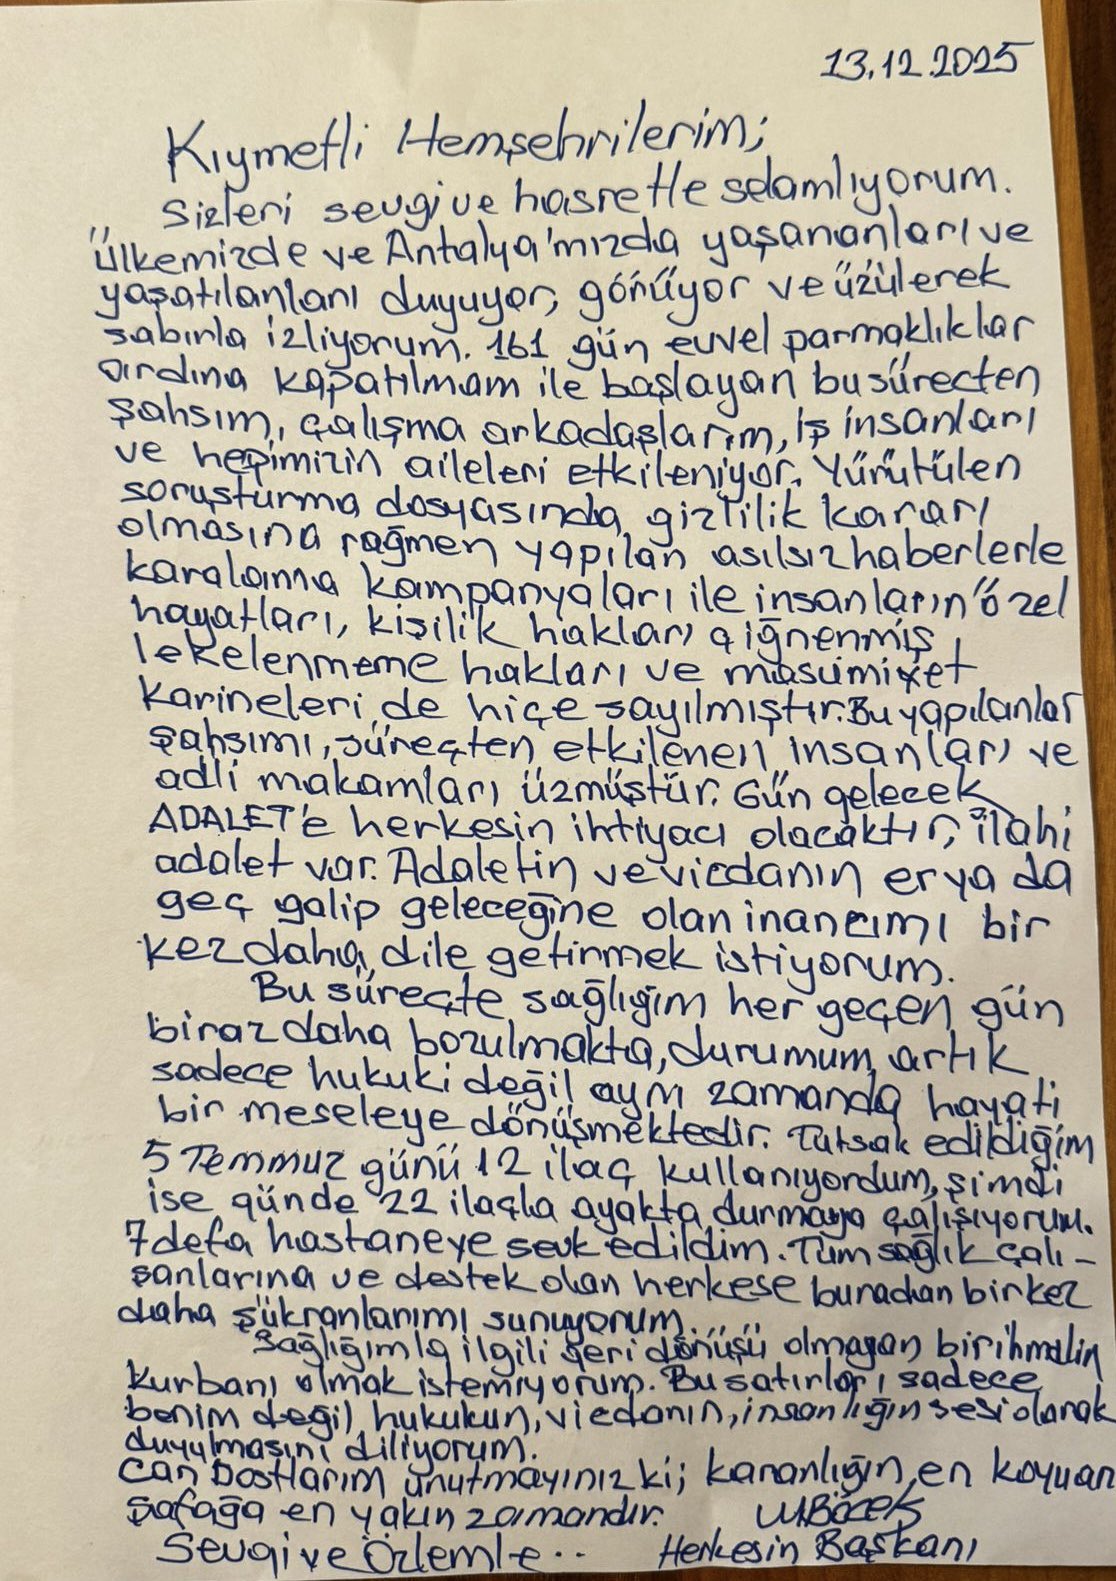 13.12.2025
Kıymetli Hemşehrilerim;
Sizleri sevgi ve hasretle selamlıyorum.
Ülkemizde ve Antalya'mızda yaşananları ve
yaşatılanları duyuyor, görüyor ve üzülerek
sabırla izliyorum. 161 gün evvel parmaklıklar
ardına kapatılmam ile başlayan bu süreçten
şahsım, çalışma arkadaşlarım, iş insanları
ve hepimizin aileleri etkileniyor. Yürütülen
soruşturma dosyasında gizlilik kararı
olmasına rağmen yapılan asılsız haberlerle
karalama kampanyaları ile insanların özel
hayatları, kişilik hakları çiğnenmiş,
lekelenmeme hakları ve masumiyet
karineleri de hiçe sayılmıştır. Bu yapılanlar
şahsımı, süreçten etkilenen insanları ve
adli makamları üzmüştür. Gün gelecek
ADALET'e herkesin ihtiyacı olacaktır, ilahi
adalet var. Adaletin ve vicdanın er ya da
geç galip geleceğine olan inancımı bir
kez daha dile getirmek istiyorum.
Bu süreçte sağlığım her geçen gün
biraz daha bozulmakta, durumum artık
sadece hukuki değil aynı zamanda hayati
bir meseleye dönüşmektedir. Tutsak edildiğim
5 Temmuz günü 12 ilaç kullanıyordum, şimdi
ise günde 22 ilaçla ayakta durmaya çalışıyorum.
7 defa hastaneye sevk edildim. Tüm sağlık çalı-
şanlarına ve destek olan herkese buradan bir kez
daha şükranlarımı sunuyorum.
Sağlığımla ilgili geri dönüşü olmayan bir ihmalin
kurbanı olmak istemiyorum. Bu satırları sadece
benim değil, hukukun, vicdanın, insanlığın sesi olarak
duyulmasını diliyorum.
Can Dostlarım unutmayınız ki; karanlığın en koyuan
Şafağa en yakın zamandır. M.Böcek
Sevgi ve Özlemle.. Herkesin Başkanı